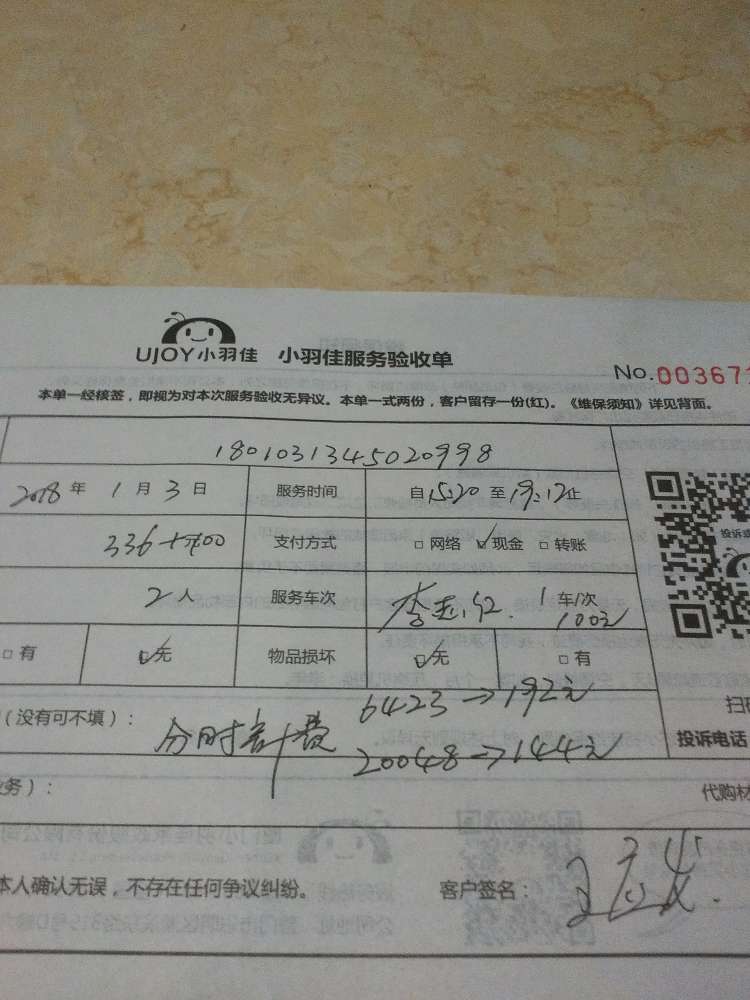 UJOY小羽佳 小羽佳服务验收单
No.003673
本单一经核签，即视为对本次服务验收无异议。本单一式两份，客户留存一份(红)。《维保须知》详见背面。
1801031345020998
2018年1月3日 服务时间 自15:20至19:12止
336+ 支付方式 □网络 ☑现金 □转账
2人 服务车次 李 红. 1车/次 100元
□有 ☑无 物品损坏 ☑无 □有
(没有可不填)： 分时计费 6423→192元
20048→144元
扫
投诉电话
务)： 代购材
本人确认无误，不存在任何争议纠纷。 客户签名：